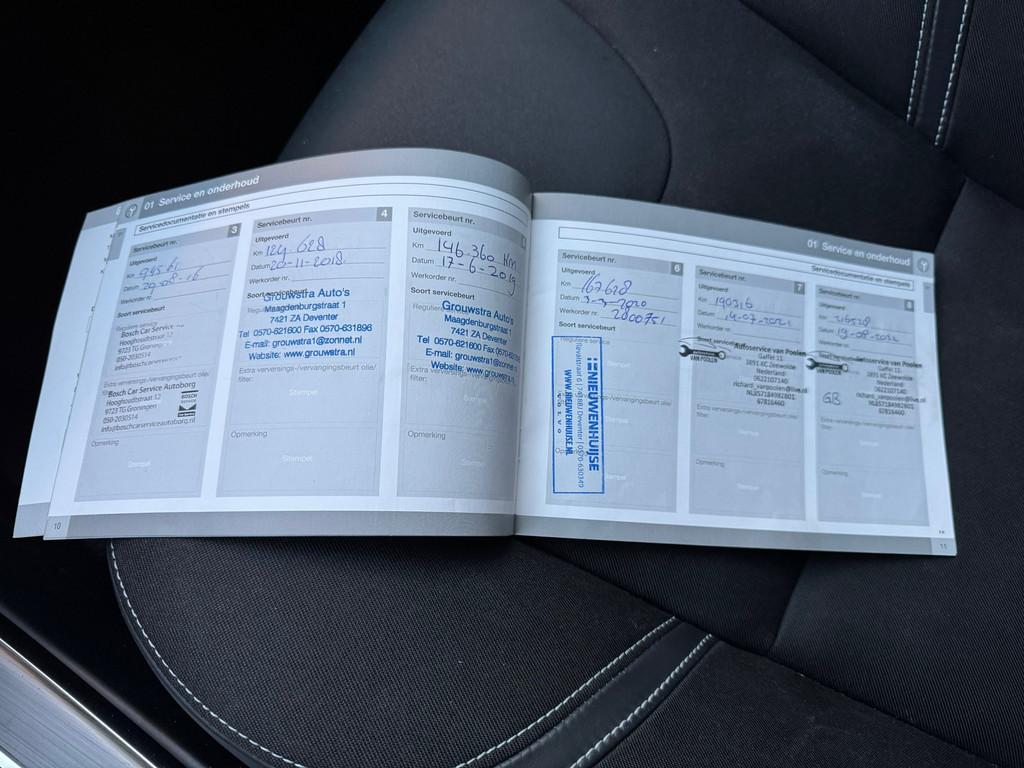 01 Service en onderhoud
Servicedocumentatie en stempels
Servicebeurt nr. 3
Uitgevoerd
Km 98561
Datum 29-08-16
Werkorder nr.
Bosch Car Service
Hooghoudtstraat 12
9723 TG Groningen
050-2030514
Extra verversings-/vervangingsbeurt olie/
filter:
Bosch Car Service Autoborg
Hooghoudtstraat 12
9723 TG Groningen
050-2030514
info@boschcarserviceautoborg.nl
BOSCH
Opmerking
Stempel
Servicebeurt nr. 4
Uitgevoerd
Km 129.628
Datum 20-11-2018
Werkorder nr.
Soort servicebeurt
Grouwstra Auto's
Maagdenburgstraat 1
7421 ZA Deventer
Tel 0570-621600 Fax 0570-631896
E-mail: grouwstra1@zonnet.nl
Website: www.grouwstra.nl
Extra verversings-/vervangingsbeurt olie/
filter:
Opmerking
Stempel
Servicebeurt nr.
Uitgevoerd
Km 146.360 KM
Datum 17-6-2019
Werkorder nr.
Soort servicebeurt
Grouwstra Auto's
Maagdenburgstraat 1
7421 ZA Deventer
Tel 0570-621600 Fax 0570-6318
E-mail: grouwstra1@zonnet
Website: www.grouwstra.nl
filter:
Opmerking
Stempel
10
01 Service en onderhoud
Servicedocumentatie en stempels
Servicebeurt nr. 6
Uitgevoerd
Km 167628
Datum 3-3-2020
Werkorder nr. 2000751
Soort servicebeurt
Reguliere service
NIEUWENHUIJSE
WWW.NIEUWENHUIJSE.NL
volvo
Opmerking
Stempel
Servicebeurt nr. 7
Uitgevoerd
Km 190316
Datum 14-07-2021
Werkorder nr.
VAN POOLEN
Autoservice van Poolen
Gaffel 11
3891 KC Zeewolde
Nederland
0622107140
richard_vanpoolen@live.nl
67816460
Extra verversings-/vervangingsbeurt olie/
filter:
Opmerking
Stempel
Servicebeurt nr. 8
Uitgevoerd
Km
Datum 19-08-2022
Werkorder nr.
VAN POOLEN
Autoservice van Poolen
Gaffel 11
3891 KC Zeewolde
Nederland
0622107140
richard_vanpoolen@live.nl
67816460
GB
Opmerking
Stempel
11